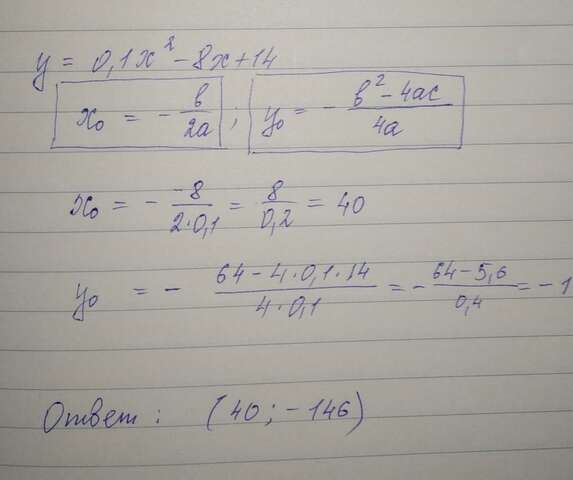 y = 0,1x² - 8x + 14
x₀ = - в/2a ; y₀ = - (в² - 4ac)/4a
x₀ = - -8/2·0,1 = 8/0,2 = 40
y₀ = - (64 - 4·0,1·14)/4·0,1 = - (64 - 5,6)/0,4 = - 1
Ответ: (40; -146)